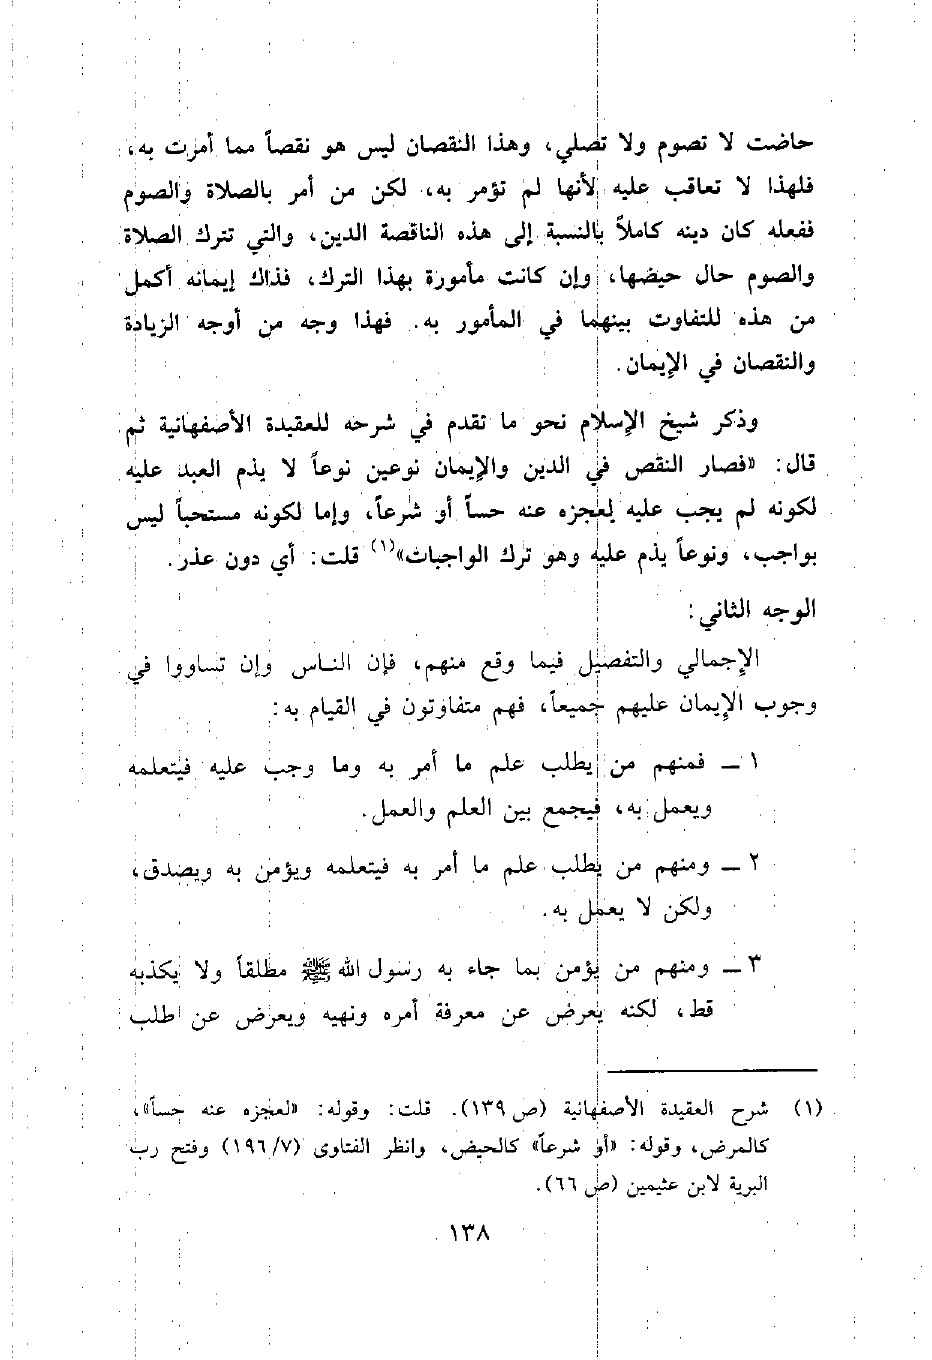 حاضت لا تصوم ولا تصلي، وهذا النقصان ليس هو نقصاً مما أمرت به،
فلهذا لا تعاقب عليه لأنها لم تؤمر به، لكن من أمر بالصلاة والصوم
ففعله كان دينه كاملاً بالنسبة إلى هذه الناقصة الدين، والتي تترك الصلاة
والصوم حال حيضها، وإن كانت مأمورة بهذا الترك، فذاك إيمانه أكمل
من هذه للتفاوت بينهما في المأمور به. فهذا وجه من أوجه الزيادة
والنقصان في الإيمان.
وذكر شيخ الإسلام نحو ما تقدم في شرحه للعقيدة الأصفهانية ثم
قال: «فصار النقص في الدين والإيمان نوعين نوعاً لا يذم العبد عليه
لكونه لم يجب عليه لعجزه عنه حساً أو شرعاً، وإما لكونه مستحباً ليس
بواجب، ونوعاً يذم عليه وهو ترك الواجبات»(١) قلت: أي دون عذر.
الوجه الثاني:
الإجمالي والتفصيل فيما وقع منهم، فإن الناس وإن تساووا في
وجوب الإيمان عليهم جميعاً، فهم متفاوتون في القيام به:
١ ــ فمنهم من يطلب علم ما أمر به وما وجب عليه فيتعلمه
ويعمل به، فيجمع بين العلم والعمل.
٢ ــ ومنهم من يطلب علم ما أمر به فيتعلمه ويؤمن به ويصدق،
ولكن لا يعمل به.
٣ ــ ومنهم من يؤمن بما جاء به رسول الله ﷺ مطلقاً ولا يكذبه
قط، لكنه يعرض عن معرفة أمره ونهيه ويعرض عن طلب
(١) شرح العقيدة الأصفهانية (ص ١٣٩). قلت: وقوله: «لعجزه عنه حساً»،
كالمرض، وقوله: «أو شرعاً» كالحيض، وانظر الفتاوى (٧/ ١٩٦) وفتح رب
البرية لابن عثيمين (ص ٦٦).
١٣٨